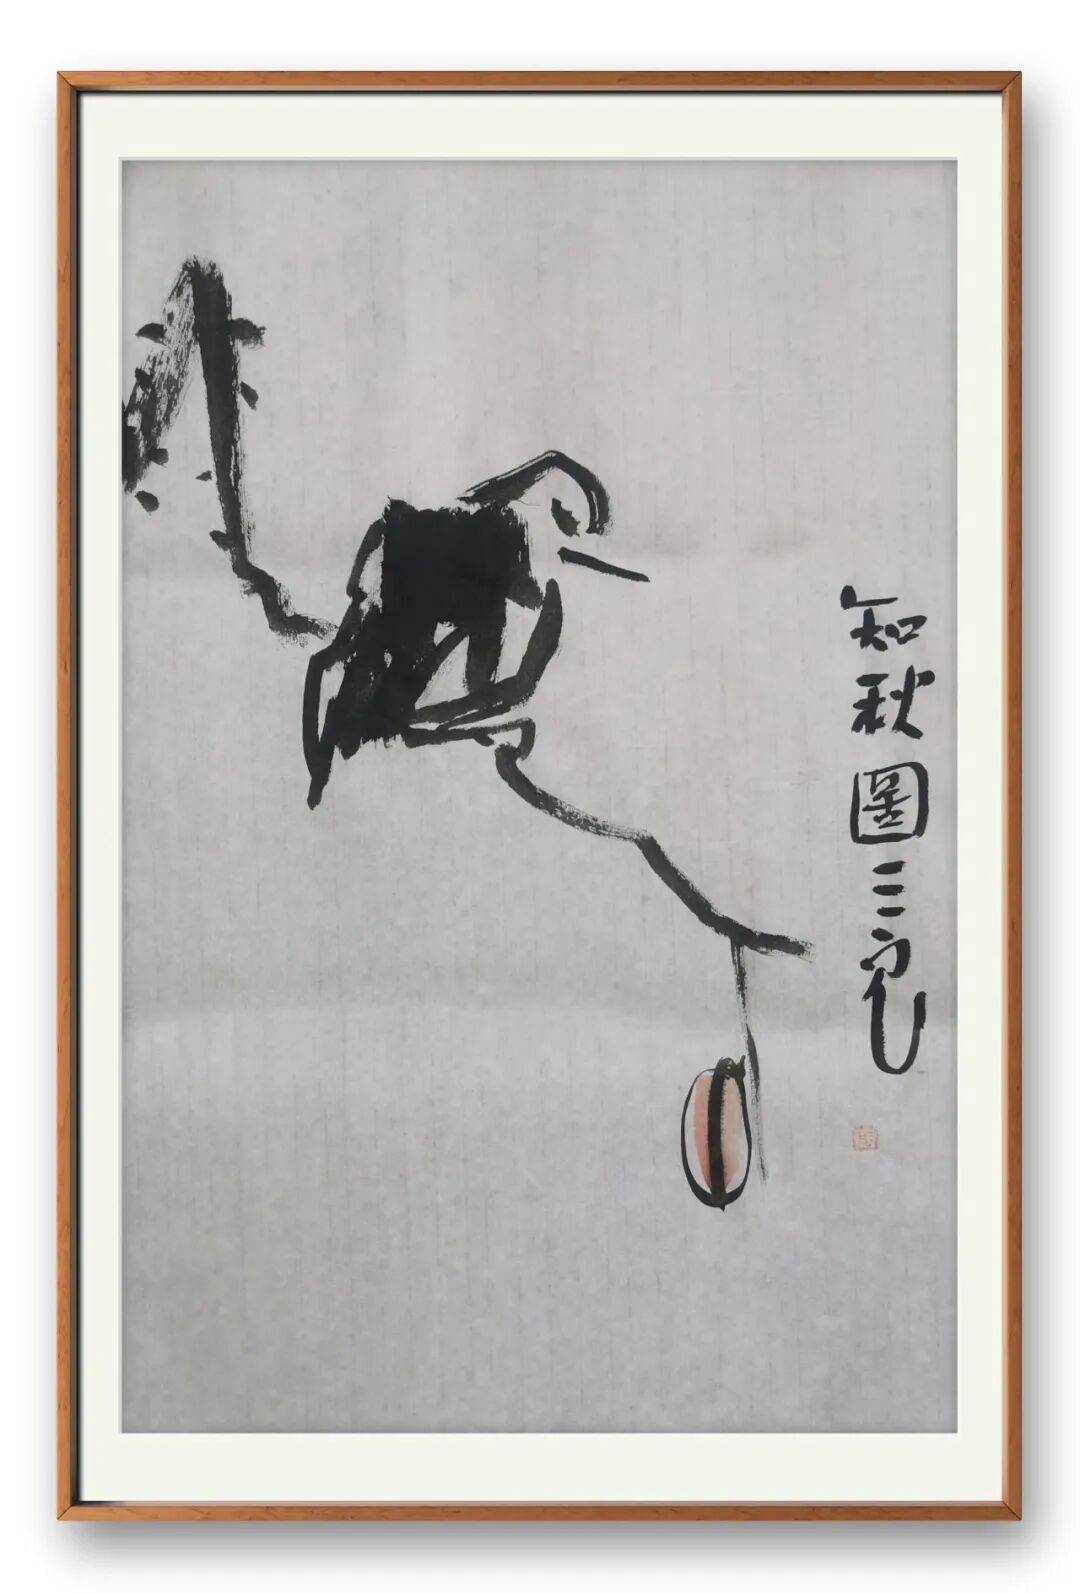 知秋圖三良